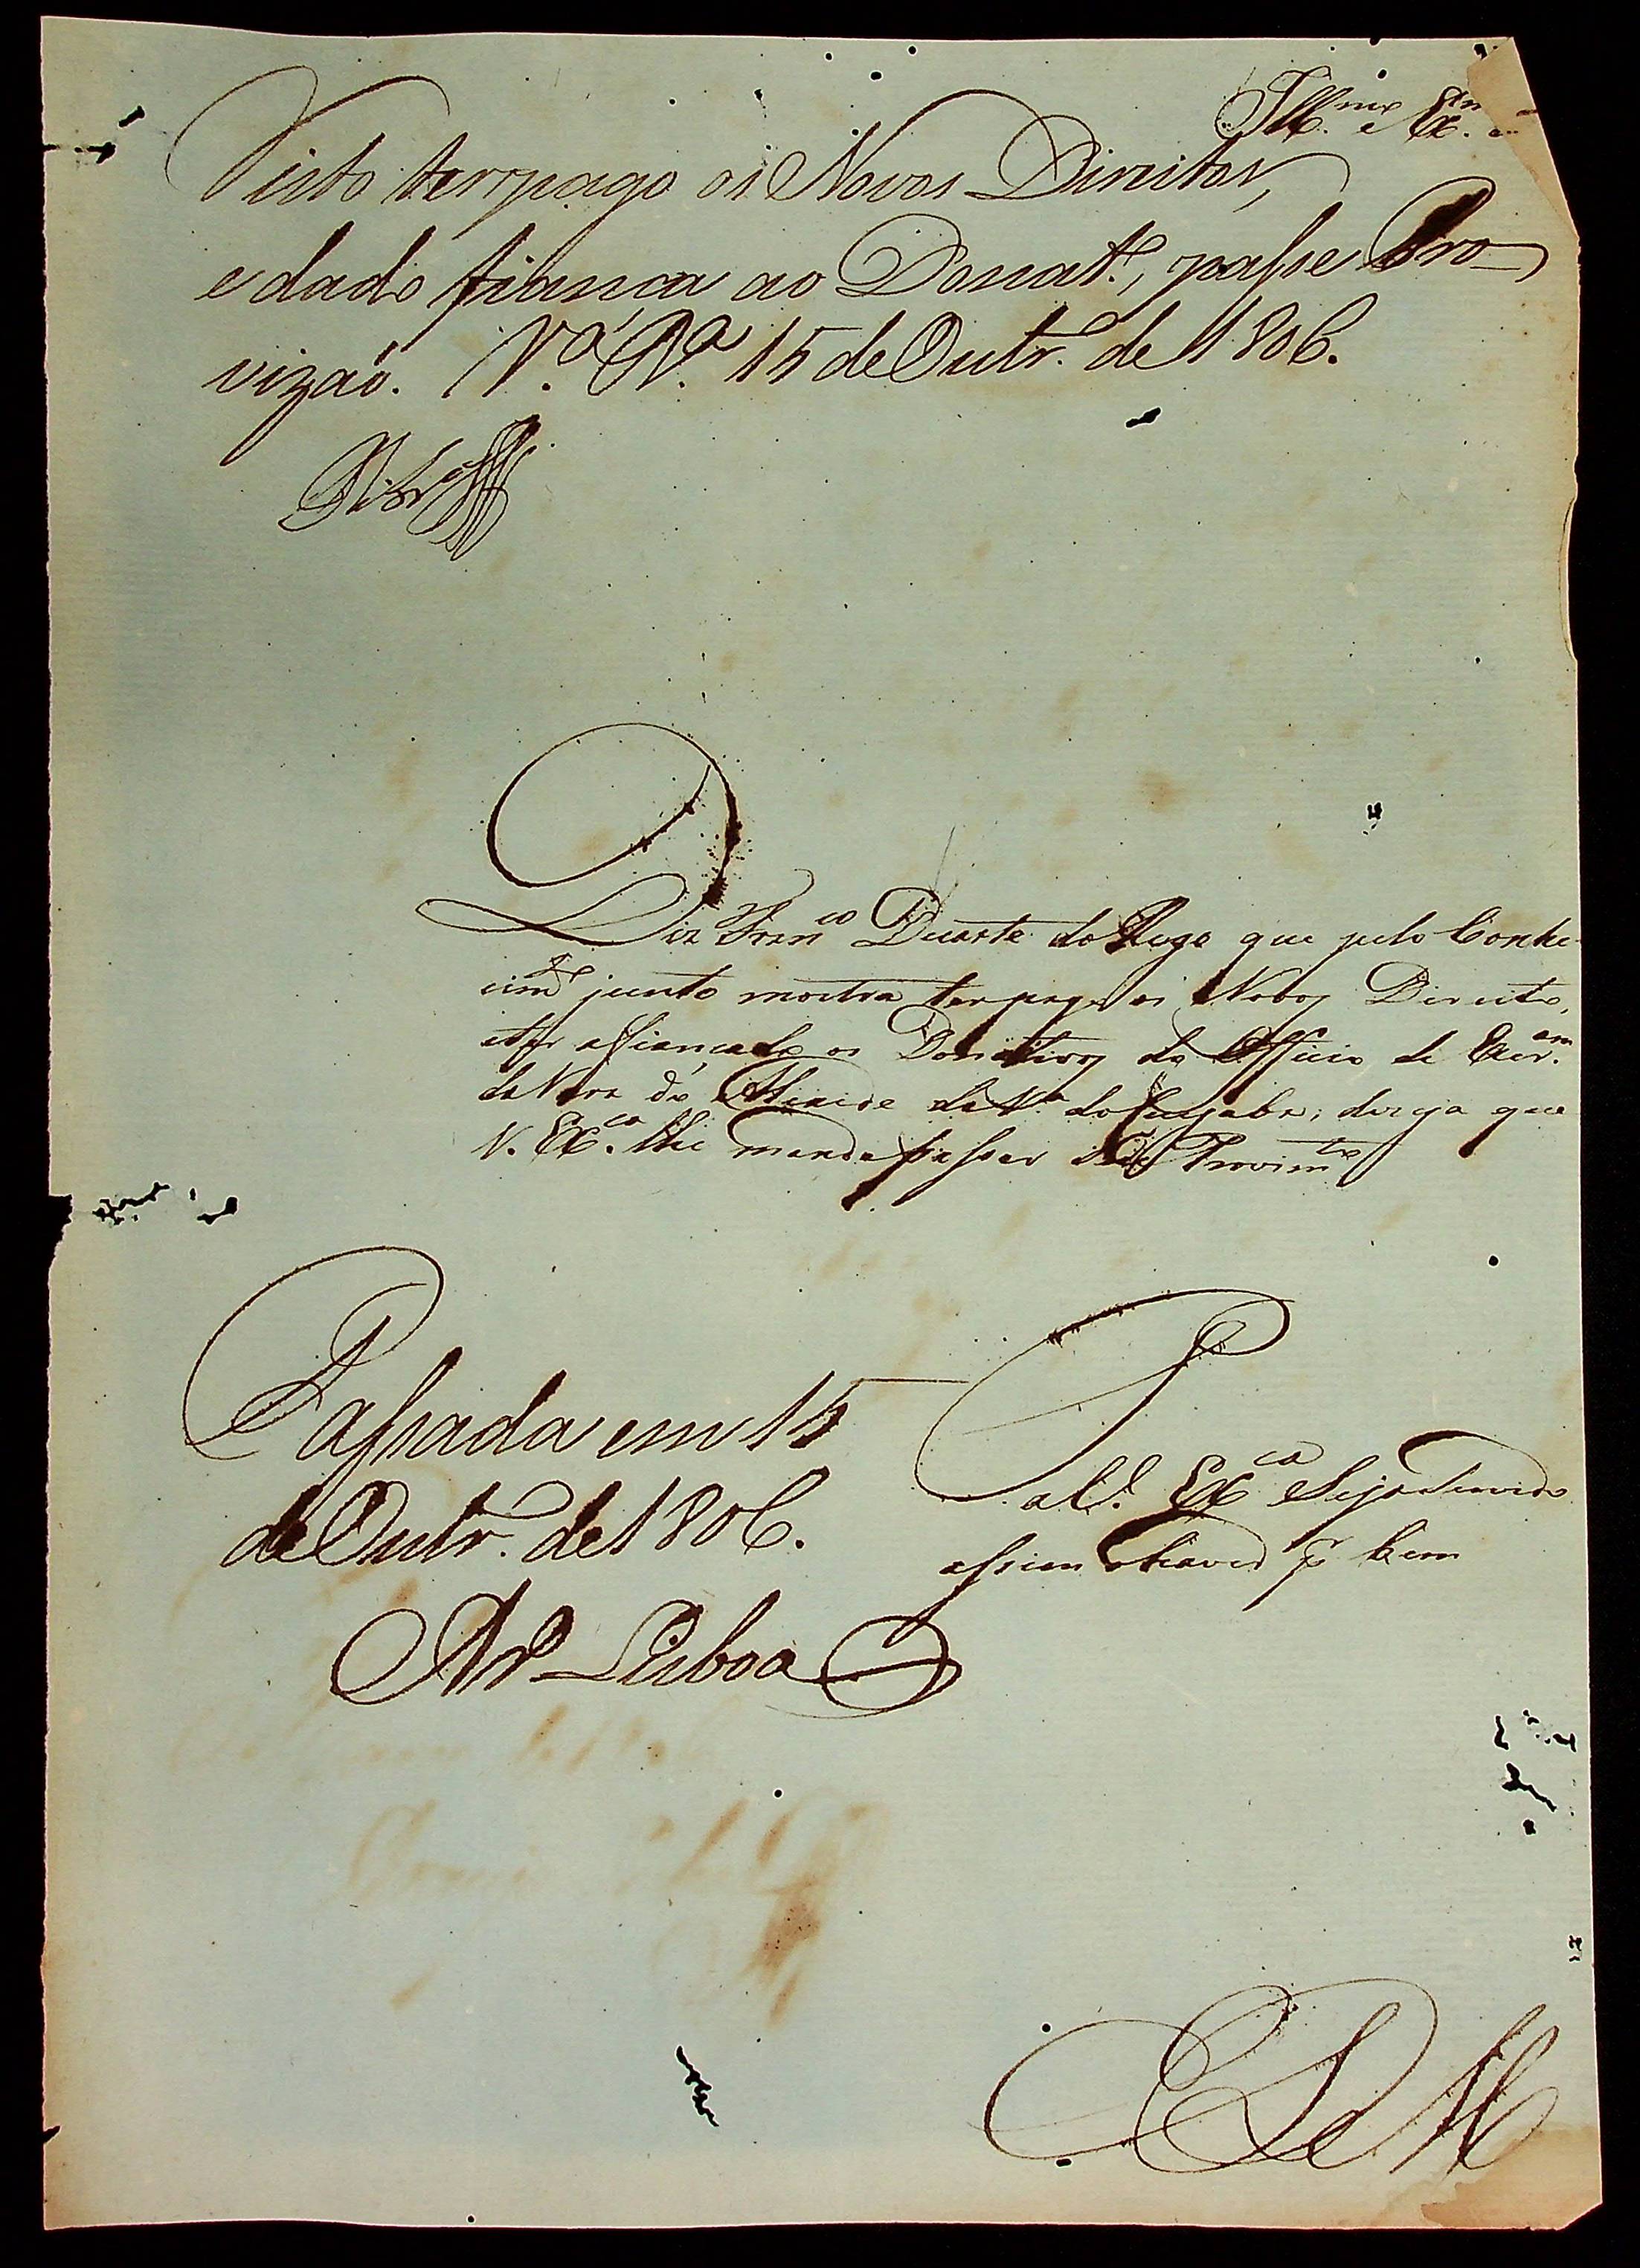 Ill.mo e Ex.mo
Visto ter pago os Novos Direitos,
e dado fiança ao Donat.º, passe Pro-
vizaõ. V.ª R.ª 15 de Outr.º de 1806.
Diz Fran.co Duarte do Rego que pelo Conhe-
cim.to junto mostra ter pago os Novos Direitos,
e ter afiançado os Donativos do Officio de Escr.am
da Vara do Alcaide da V.ª do Cuyabá; dezeja que
V. Ex.ca lhe mande passar Provim.to
Passada em 15
de Outr.º de 1806.
P
a V. Ex.ca Seja Servido
assim o haver p.r bem
Lisboa
E R M